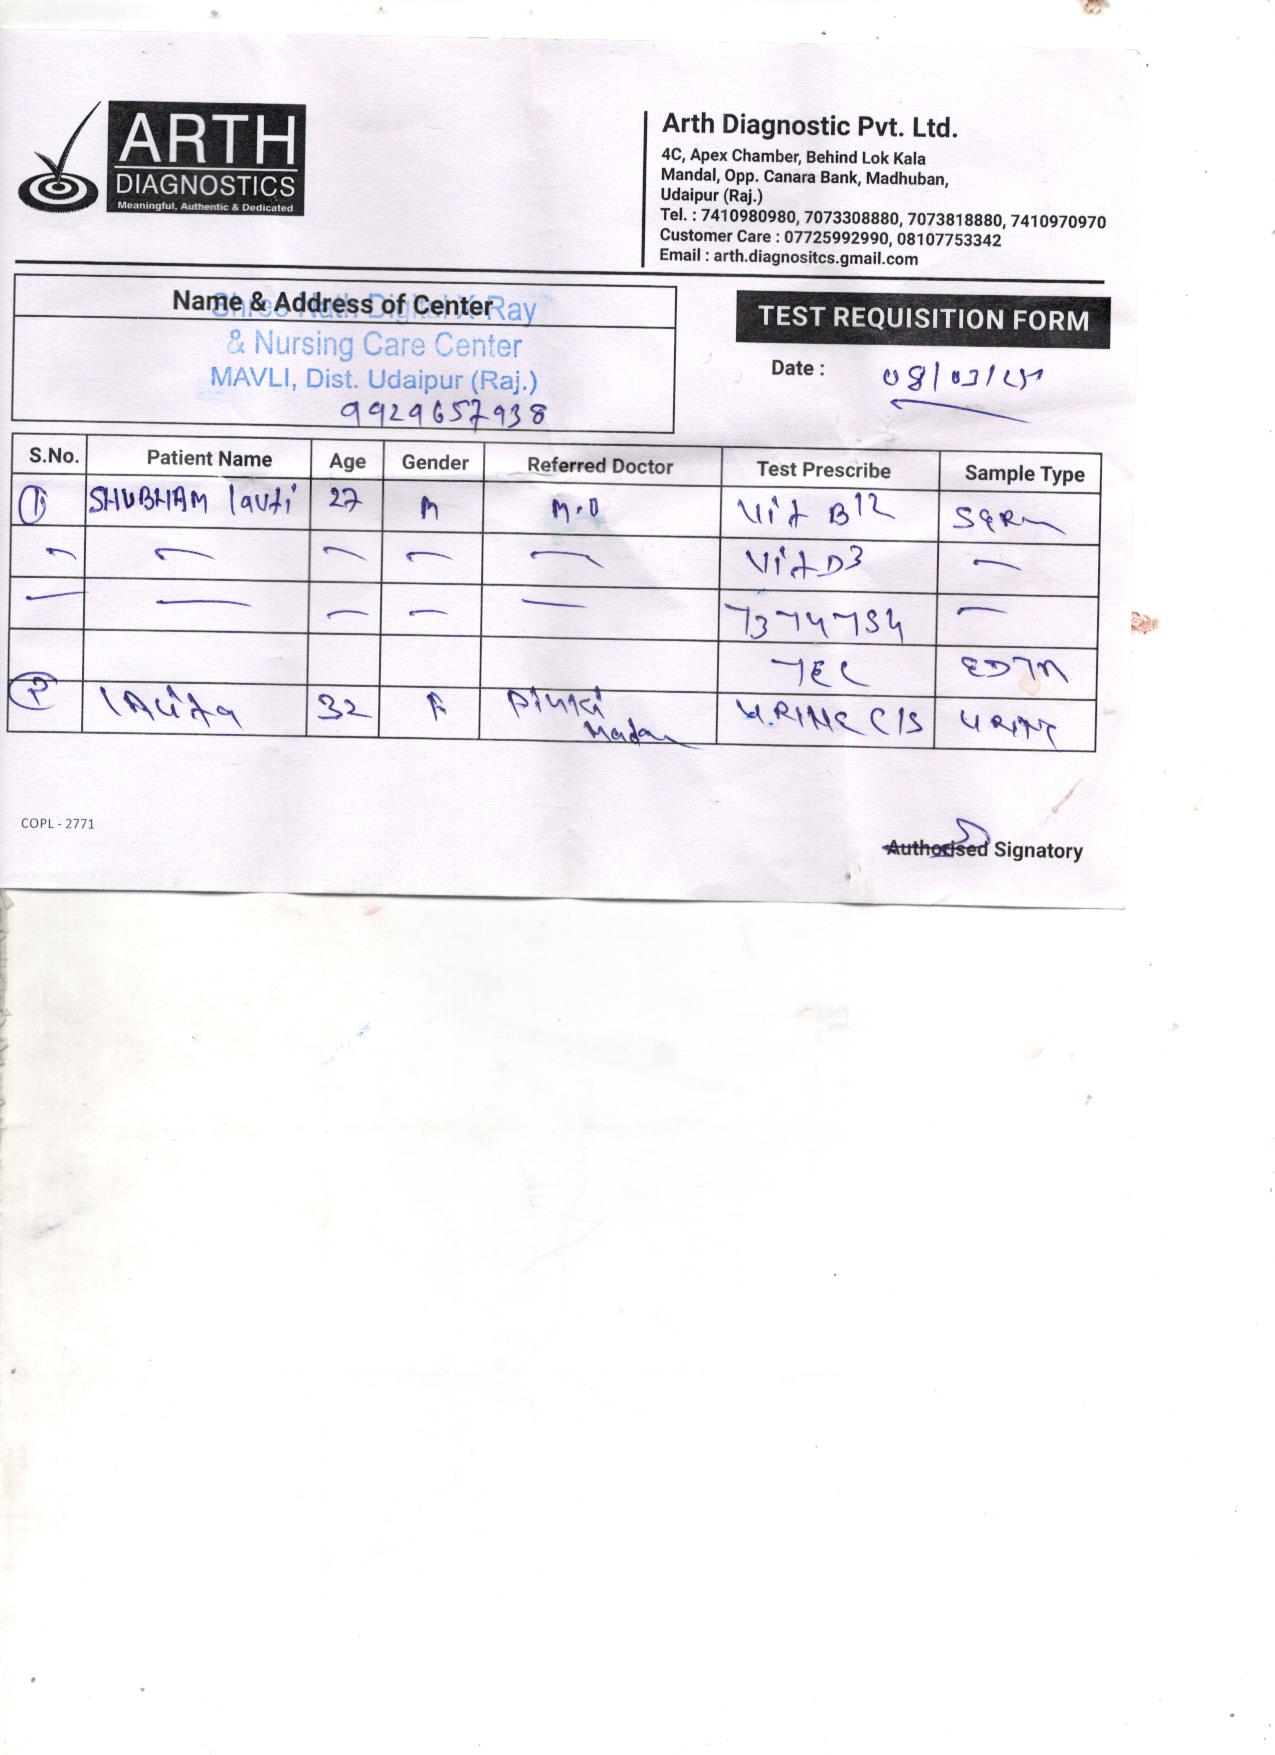 ARTH
DIAGNOSTICS
Meaningful, Authentic & Dedicated
Arth Diagnostic Pvt. Ltd.
4C, Apex Chamber, Behind Lok Kala
Mandal, Opp. Canara Bank, Madhuban,
Udaipur (Raj.)
Tel. : 7410980980, 7073308880, 7073818880, 7410970970
Customer Care : 07725992990, 08107753342
Email : arth.diagnositcs.gmail.com
Name & Address of Center
Shree Nath Digital X-Ray
& Nursing Care Center
MAVLI, Dist. Udaipur (Raj.)
9929657938
TEST REQUISITION FORM
Date : 08/03/25
S.No. Patient Name Age Gender Referred Doctor Test Prescribe Sample Type
1 SHUBHAM 27 M M.O Vit B12
Vit D3
T3 T4 TSH
TEC EDTA
2 LALITA 32 F Pinki URINE C/S URINE
COPL - 2771
Authorised Signatory